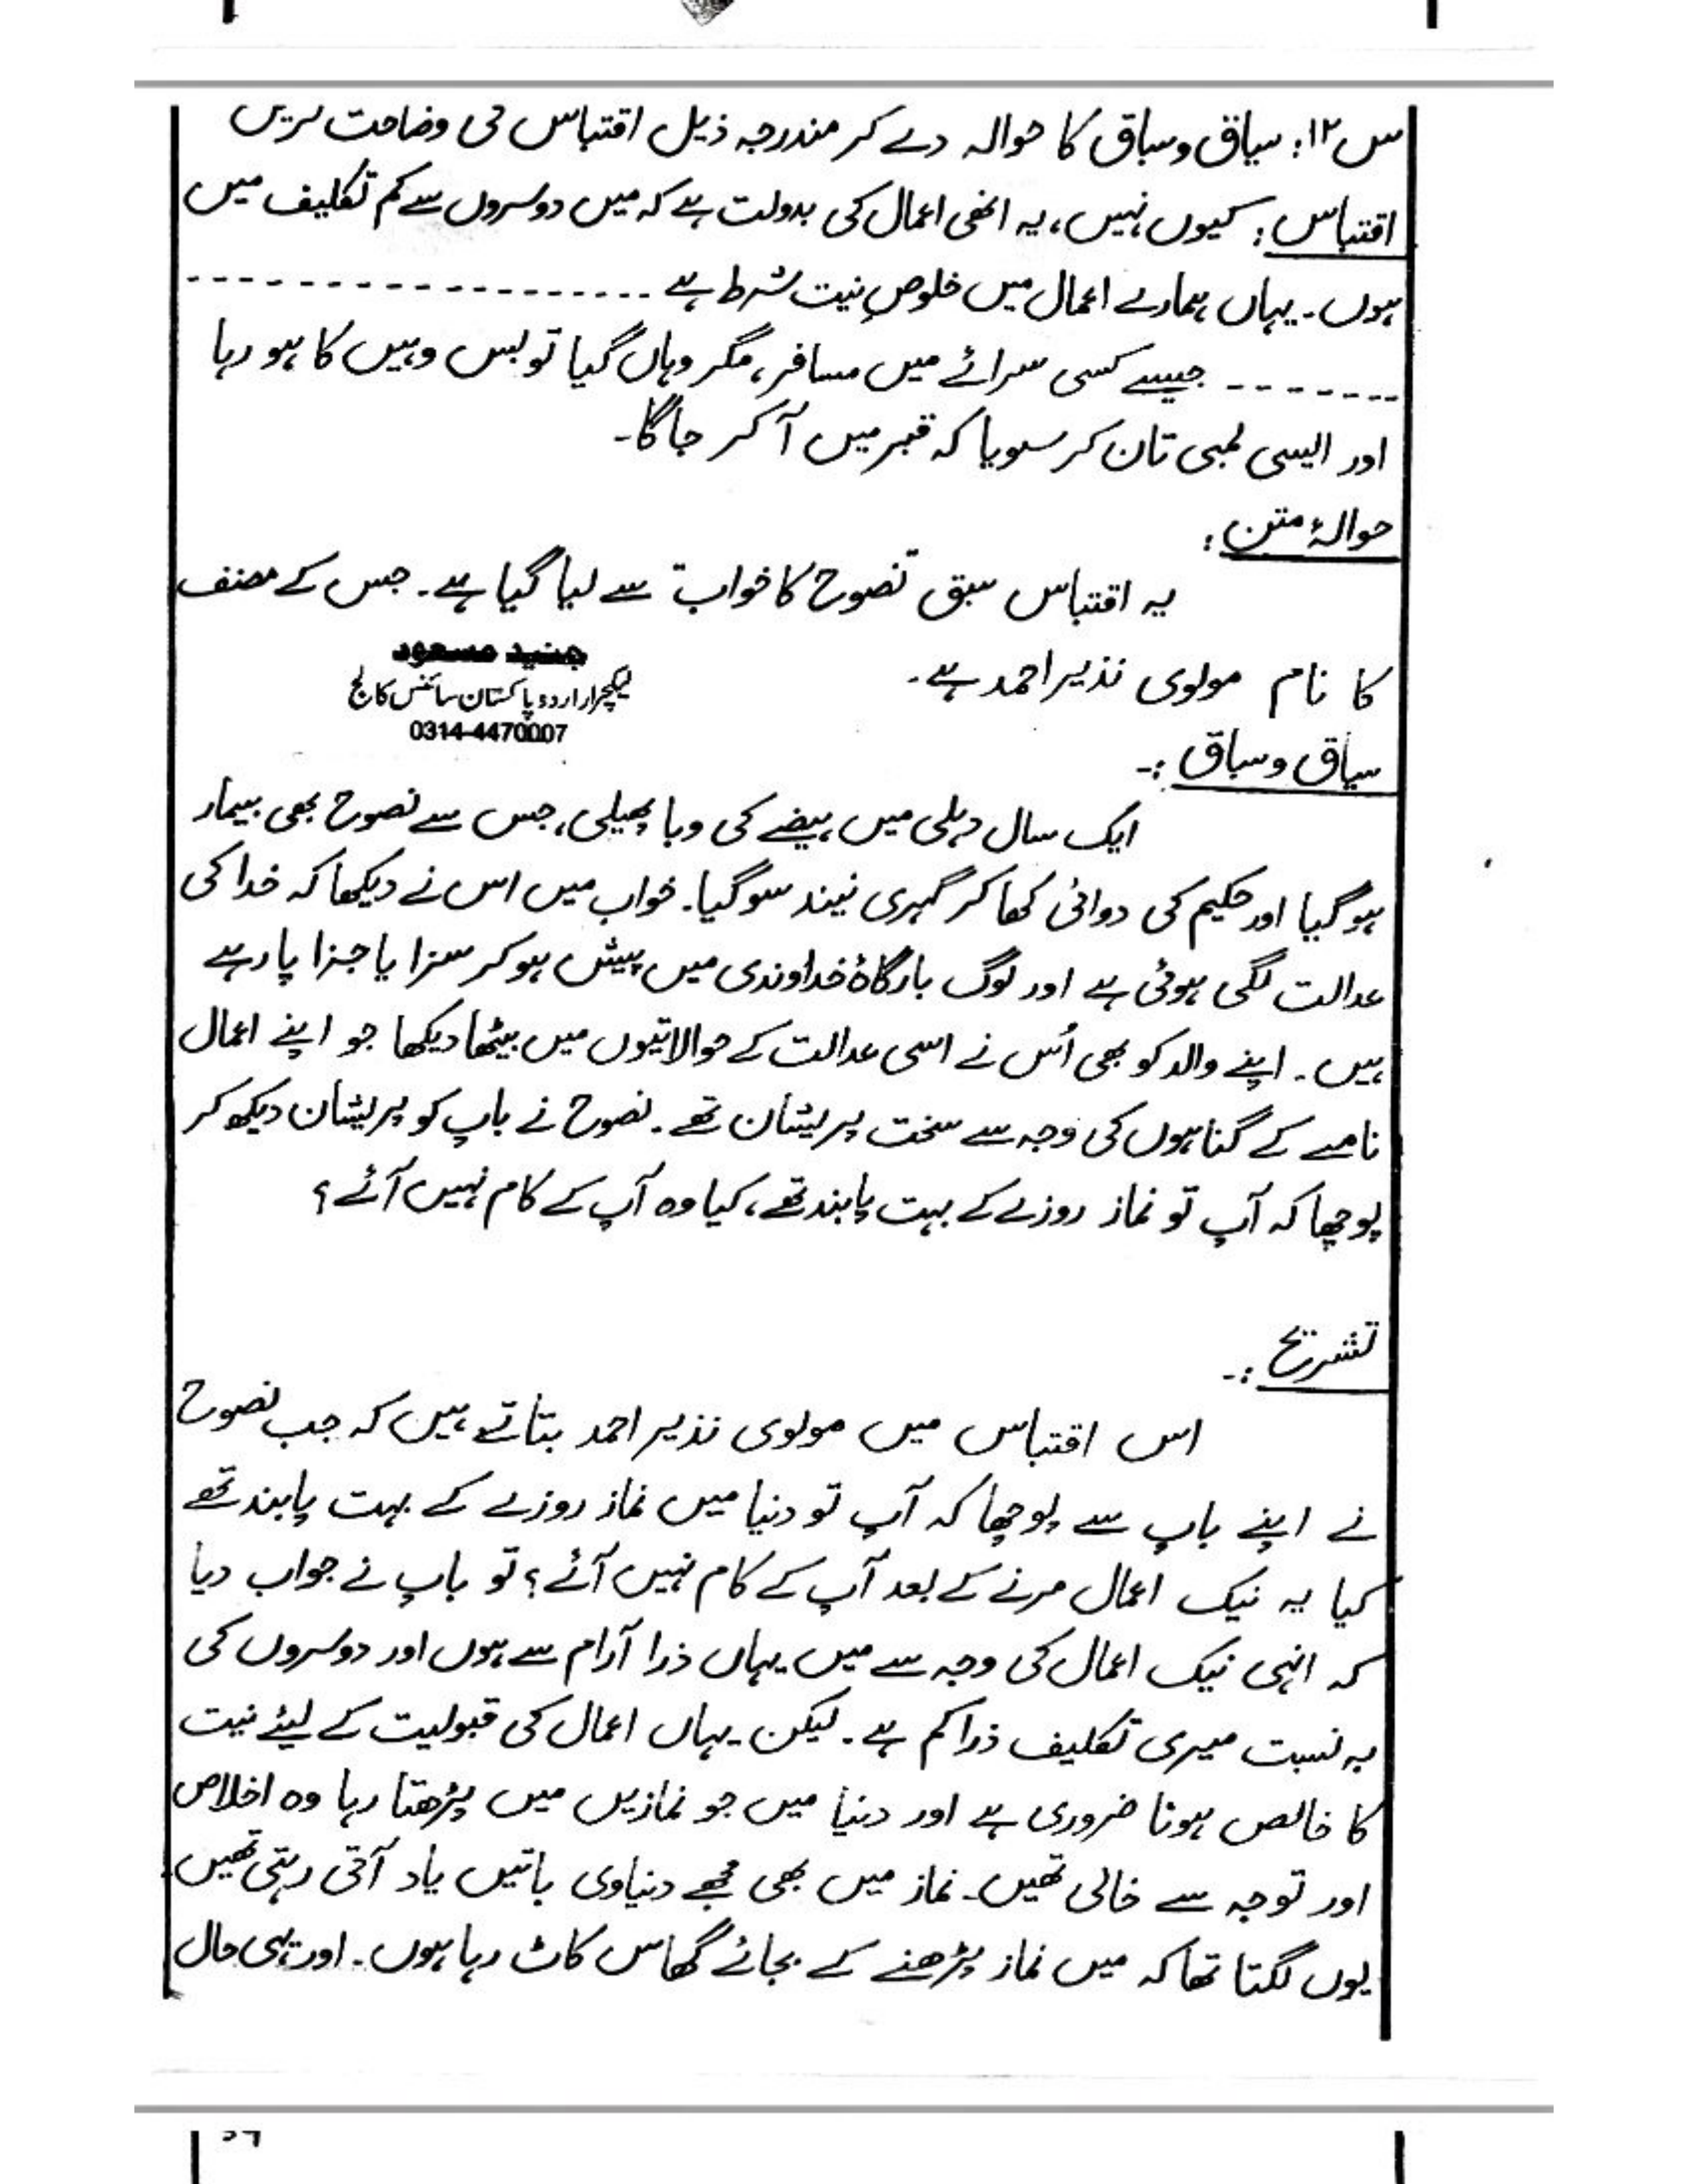 س۱۲: سیاق و سباق کا حوالہ دے کر مندرجہ ذیل اقتباس کی وضاحت کریں
اقتباس: کیوں نہیں، یہ انھی اعمال کی بدولت ہے کہ میں دوسروں سے کم تکلیف میں
ہوں۔ یہاں ہمارے اعمال میں خلوصِ نیت شرط ہے -------------------
------- جیسے کسی سرائے میں مسافر، مگر وہاں گیا تو بس وہیں کا ہو رہا
اور ایسی لمبی تان کر سویا کہ قبر میں آ کر جاگا۔
حوالۂ متن:
یہ اقتباس سبق "نصوح کا خواب" سے لیا گیا ہے۔ جس کے مصنف
کا نام مولوی نذیر احمد ہے۔
جنید مسعود
لیکچرار اردو پاکستان سائنس کالج
0314-4470007
سیاق و سباق :-
ایک سال دہلی میں ہیضے کی وبا پھیلی، جس سے نصوح بھی بیمار
ہو گیا اور حکیم کی دوائی کھا کر گہری نیند سو گیا۔ خواب میں اس نے دیکھا کہ خدا کی
عدالت لگی ہوئی ہے اور لوگ بارگاۂ خداوندی میں پیش ہو کر سزا یا جزا پا رہے
ہیں۔ اپنے والد کو بھی اُس نے اسی عدالت کے حوالاتیوں میں بیٹھا دیکھا جو اپنے اعمال
نامے کے گناہوں کی وجہ سے سخت پریشان تھے۔ نصوح نے باپ کو پریشان دیکھ کر
پوچھا کہ آپ تو نماز روزے کے بہت پابند تھے، کیا وہ آپ کے کام نہیں آئے؟
تشریح :-
اس اقتباس میں مولوی نذیر احمد بتاتے ہیں کہ جب نصوح
نے اپنے باپ سے پوچھا کہ آپ تو دنیا میں نماز روزے کے بہت پابند تھے
کیا یہ نیک اعمال مرنے کے بعد آپ کے کام نہیں آئے؟ تو باپ نے جواب دیا
کہ انہی نیک اعمال کی وجہ سے میں یہاں ذرا آرام سے ہوں اور دوسروں کی
بہ نسبت میری تکلیف ذرا کم ہے۔ لیکن یہاں اعمال کی قبولیت کے لیئے نیت
کا خالص ہونا ضروری ہے اور دنیا میں جو نمازیں میں پڑھتا رہا وہ اخلاص
اور توجہ سے خالی تھیں۔ نماز میں بھی مجھے دنیاوی باتیں یاد آتی رہتی تھیں۔
یوں لگتا تھا کہ میں نماز پڑھنے کے بجائے گھاس کاٹ رہا ہوں۔ اور یہی حال